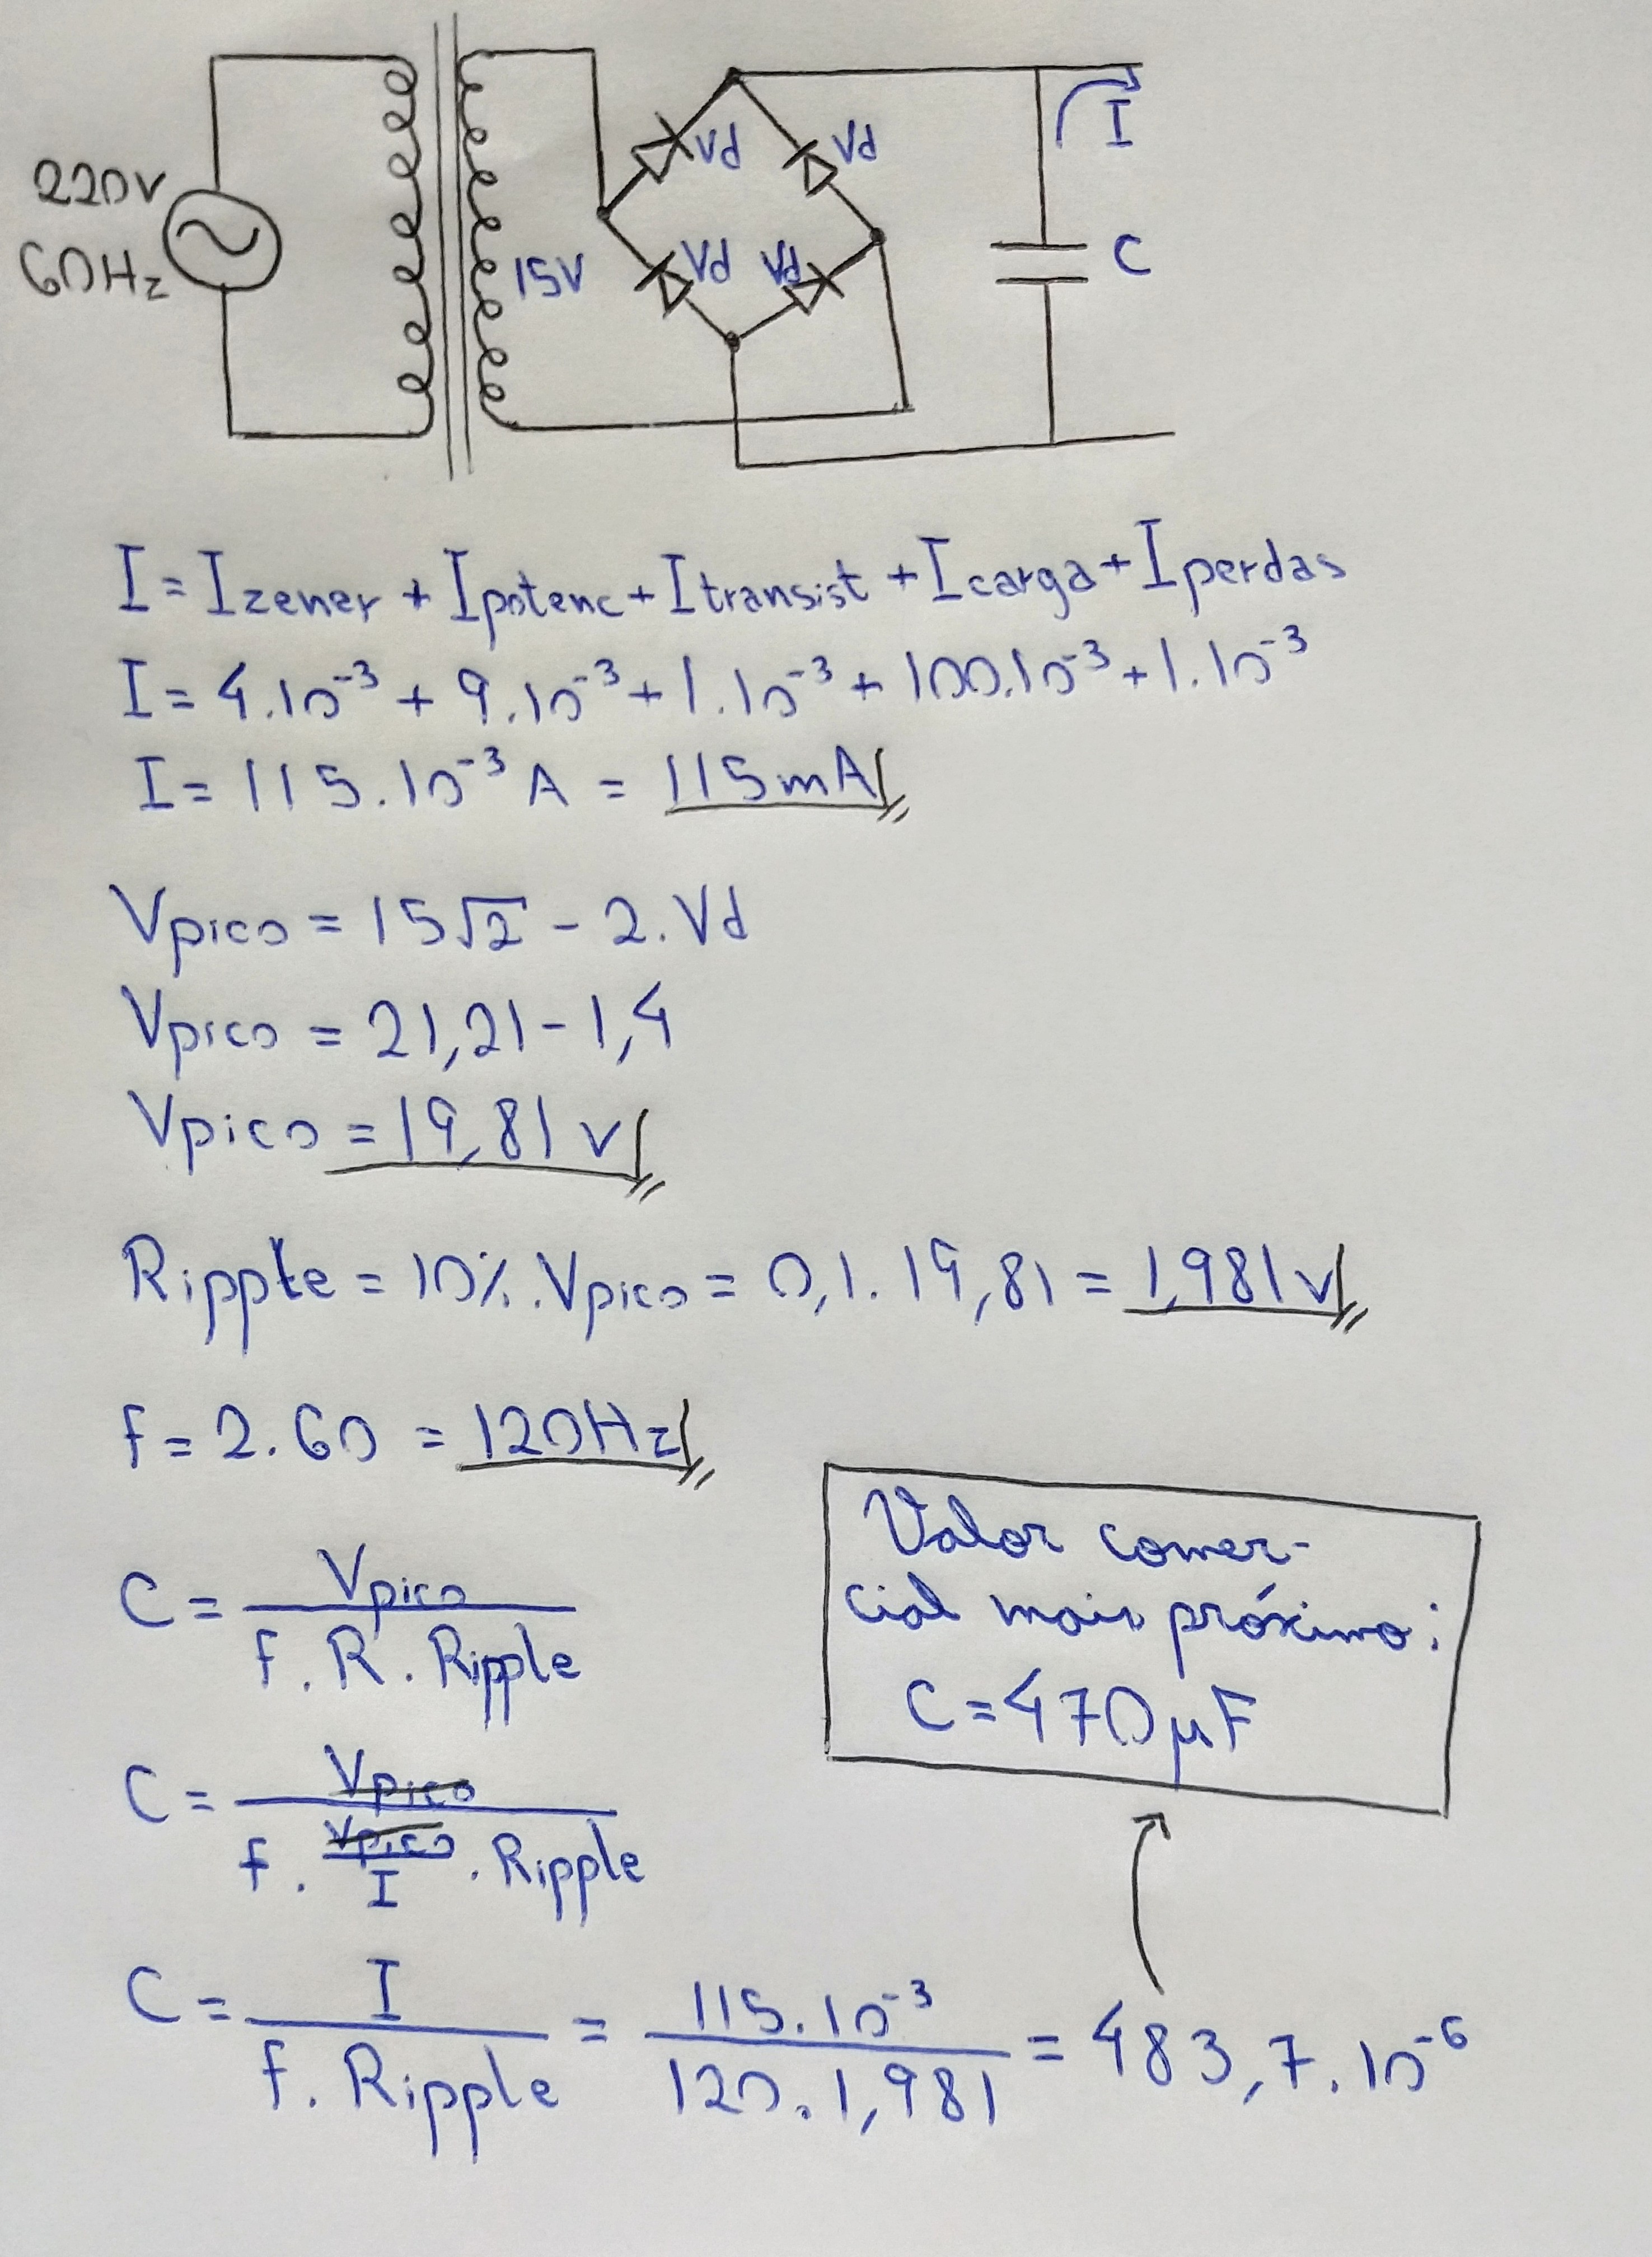 220V
60Hz
15V
Vd
Vd
Vd
Vd
I
C
I = Izener + Ipotenc + Itransist + Icarga + Iperdas
I = 4.10⁻³ + 9.10⁻³ + 1.10⁻³ + 100.10⁻³ + 1.10⁻³
I = 115.10⁻³ A = 115mA
Vpico = 15√2 - 2.Vd
Vpico = 21,21 - 1,4
Vpico = 19,81 V
Ripple = 10%.Vpico = 0,1.19,81 = 1,981 V
f = 2.60 = 120Hz
C = Vpico / f.R.Ripple
C = Vpico / f.Vpico/I.Ripple
C = I / f.Ripple = 115.10⁻³ / 120.1,981 = 483,7.10⁻⁶
Valor comer-
cial mais próximo:
C = 470μF